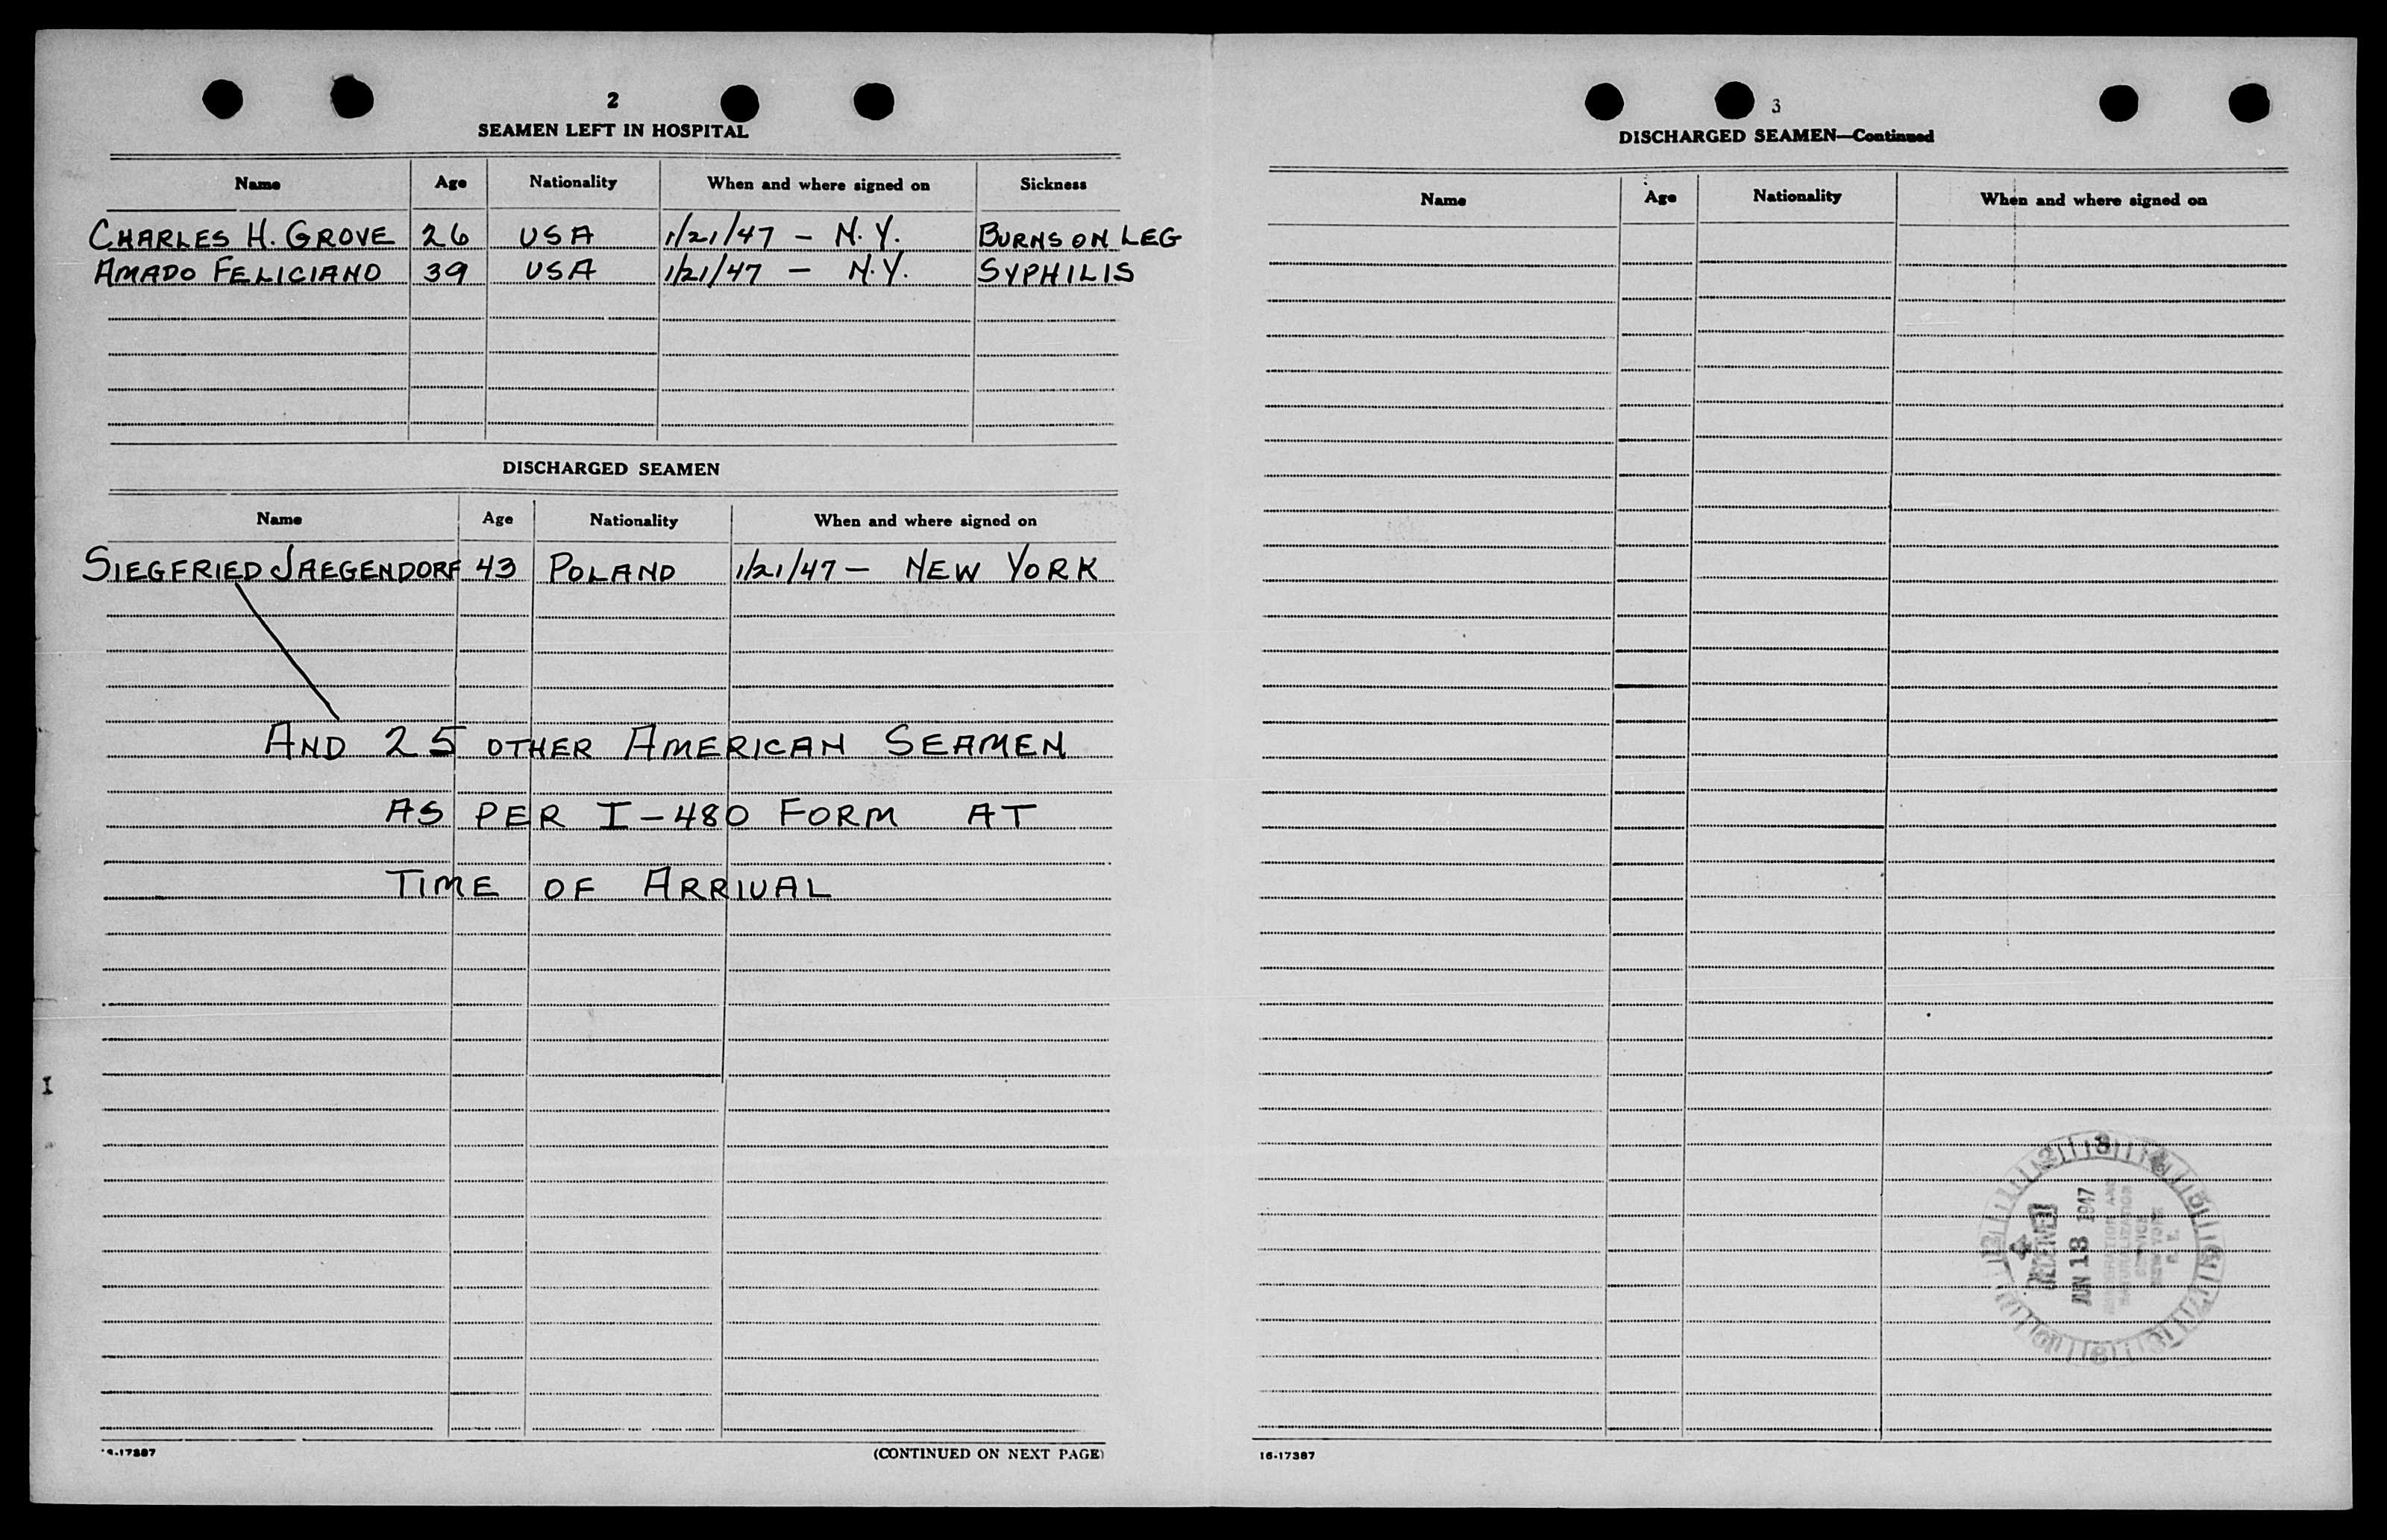 2
SEAMEN LEFT IN HOSPITAL
Name Age Nationality When and where signed on Sickness
CHARLES H. GROVE 26 USA 1/21/47 - N.Y. BURNS ON LEG
AMADO FELICIANO 39 USA 1/21/47 - N.Y. SYPHILIS
DISCHARGED SEAMEN
Name Age Nationality When and where signed on
SIEGFRIED JAEGENDORF 43 POLAND 1/21/47 - NEW YORK
AND 25 OTHER AMERICAN SEAMEN
AS PER I-480 FORM AT
TIME OF ARRIVAL
I
(CONTINUED ON NEXT PAGE)
3
DISCHARGED SEAMEN—Continued
Name Age Nationality When and where signed on
JUN 18 1947
IMMIGRATION AND
NATURALIZATION
SERVICE
NEW YORK
N. Y.
16-17387